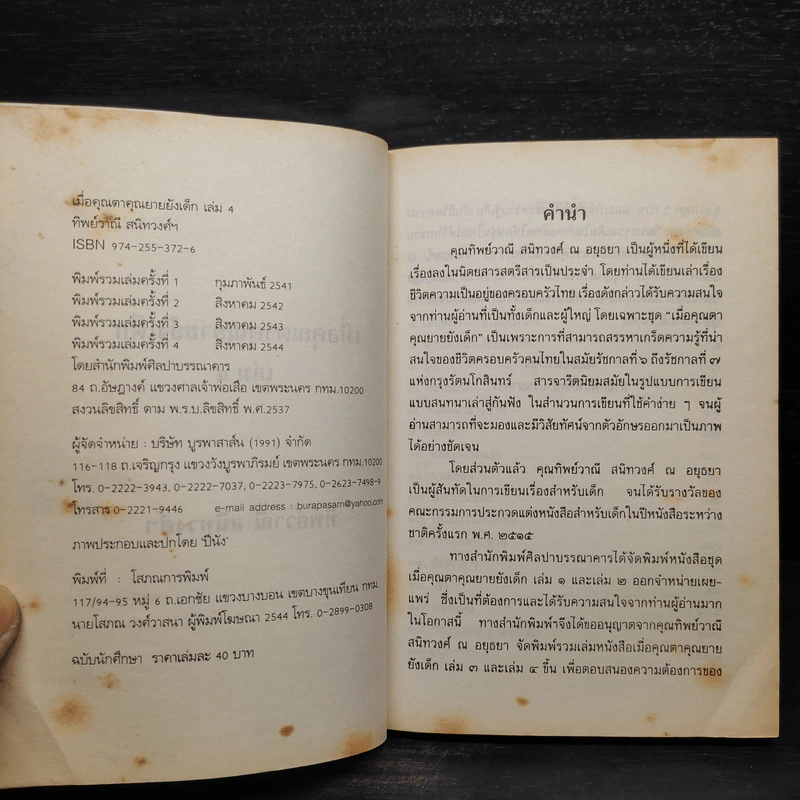 เมื่อคุณตาคุณยายยังเด็ก เล่ม 4
ทิพย์วาณี สนิทวงศ์ฯ
ISBN 974-255-372-6
พิมพ์รวมเล่มครั้งที่ 1 กุมภาพันธ์ 2541
พิมพ์รวมเล่มครั้งที่ 2 สิงหาคม 2542
พิมพ์รวมเล่มครั้งที่ 3 สิงหาคม 2543
พิมพ์รวมเล่มครั้งที่ 4 สิงหาคม 2544
โดยสำนักพิมพ์ศิลปาบรรณาคาร
84 ถ.อัษฎางค์ แขวงศาลเจ้าพ่อเสือ เขตพระนคร กทม.10200
สงวนลิขสิทธิ์ ตาม พ.ร.บ.ลิขสิทธิ์ พ.ศ.2537
ผู้จัดจำหน่าย : บริษัท บูรพาสาส์น (1991) จำกัด
116-118 ถ.เจริญกรุง แขวงวังบูรพาภิรมย์ เขตพระนคร กทม.10200
โทร. 0-2222-3943, 0-2222-7037, 0-2223-7975, 0-2623-7498-9
โทรสาร 0-2221-9446 e-mail address : burapasarn@yahoo.com
ภาพประกอบและปกโดย 'ปีนัง'
พิมพ์ที่ : โสภณการพิมพ์
117/94-95 หมู่ 6 ถ.เอกชัย แขวงบางบอน เขตบางขุนเทียน กทม.
นายโสภณ วงศ์วาสนา ผู้พิมพ์โฆษณา 2544 โทร. 0-2899-0308
ฉบับนักศึกษา ราคาเล่มละ 40 บาท
คำนำ
คุณทิพย์วาณี สนิทวงศ์ ณ อยุธยา เป็นผู้หนึ่งที่ได้เขียน
เรื่องลงในนิตยสารสตรีสารเป็นประจำ โดยท่านได้เขียนเล่าเรื่อง
ชีวิตความเป็นอยู่ของครอบครัวไทย เรื่องดังกล่าวได้รับความสนใจ
จากท่านผู้อ่านที่เป็นทั้งเด็กและผู้ใหญ่ โดยเฉพาะชุด "เมื่อคุณตา
คุณยายยังเด็ก" เป็นเพราะการที่สามารถสรรหาเกร็ดความรู้ที่น่า
สนใจของชีวิตครอบครัวคนไทยในสมัยรัชกาลที่ ๖ ถึงรัชกาลที่ ๗
แห่งกรุงรัตนโกสินทร์ สารจารีตนิยมสมัยในรูปแบบการเขียน
แบบสนทนาเล่าสู่กันฟัง ในสำนวนการเขียนที่ใช้คำง่าย ๆ จนผู้
อ่านสามารถที่จะมองและมีวิสัยทัศน์จากตัวอักษรออกมาเป็นภาพ
ได้อย่างชัดเจน
โดยส่วนตัวแล้ว คุณทิพย์วาณี สนิทวงศ์ ณ อยุธยา
เป็นผู้สันทัดในการเขียนเรื่องสำหรับเด็ก จนได้รับรางวัลของ
คณะกรรมการประกวดแต่งหนังสือสำหรับเด็กในปีหนังสือระหว่าง
ชาติครั้งแรก พ.ศ. ๒๕๑๕
ทางสำนักพิมพ์ศิลปาบรรณาคารได้จัดพิมพ์หนังสือชุด
เมื่อคุณตาคุณยายยังเด็ก เล่ม ๑ และเล่ม ๒ ออกจำหน่ายเผย-
แพร่ ซึ่งเป็นที่ต้องการและได้รับความสนใจจากท่านผู้อ่านมาก
ในโอกาสนี้ ทางสำนักพิมพ์ฯจึงได้ขออนุญาตจากคุณทิพย์วาณี
สนิทวงศ์ ณ อยุธยา จัดพิมพ์รวมเล่มหนังสือเมื่อคุณตาคุณยาย
ยังเด็ก เล่ม ๓ และเล่ม ๔ ขึ้น เพื่อตอบสนองความต้องการของ